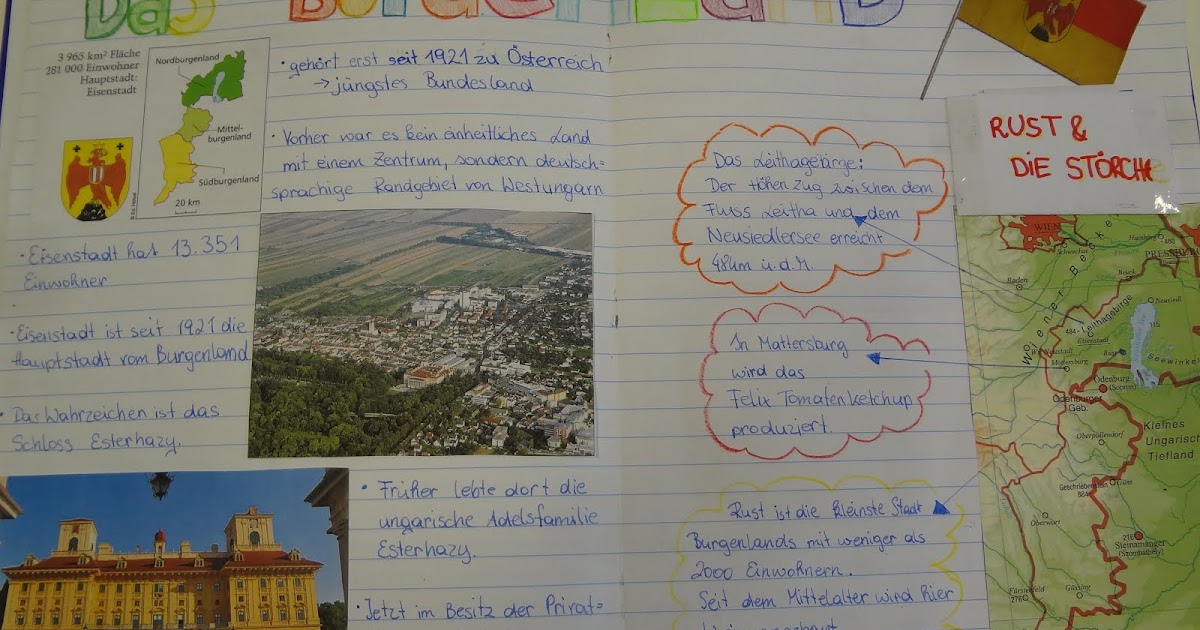 Das Burgenland
3 965 km² Fläche
281 000 Einwohner
Hauptstadt:
Eisenstadt
Nordburgenland
Mittel-
burgenland
Südburgenland
20 km
• gehört erst seit 1921 zu Österreich
→ jüngstes Bundesland
• Vorher war es kein einheitliches Land
mit einem Zentrum, sondern deutsch=
sprachige Randgebiet von Westungarn
• Eisenstadt hat 13.351
Einwohner
• Eisenstadt ist seit 1921 die
Hauptstadt vom Burgenland
• Das Wahrzeichen ist das
Schloss Esterhazy.
• Früher lebte dort die
ungarische Adelsfamilie
Esterhazy.
• Jetzt im Besitz der Privat=
Das Leithagebirge:
Der Höhenzug zwischen dem
Fluss Leitha und dem
Neusiedlersee erreicht
484m ü.d.M.
In Mattersburg
wird das
Felix Tomatenketchup
produziert.
Rust ist die kleinste Stadt
Burgenlands mit weniger als
2000 Einwohnern.
Seit dem Mittelalter wird hier
RUST &
DIE STÖRCHE
WIEN
Schwechat
Hainburg
480
PRESSBURG
Baden
Wiener Becken
Bruck
Neusiedl
484
Leithagebirge
115
Eisenstadt
Rust
Wr. Neustadt
Mattersburg
Seewinkel
Ödenburg
(Sopron)
Ödenburger
Geb.
Kleines
Ungarisch
Tiefland
Oberpullendorf
Geschriebenstein
884
Güns
Oberwart
216
Steinamanger
(Szombathely)
Fürstenfeld
276
Güssing